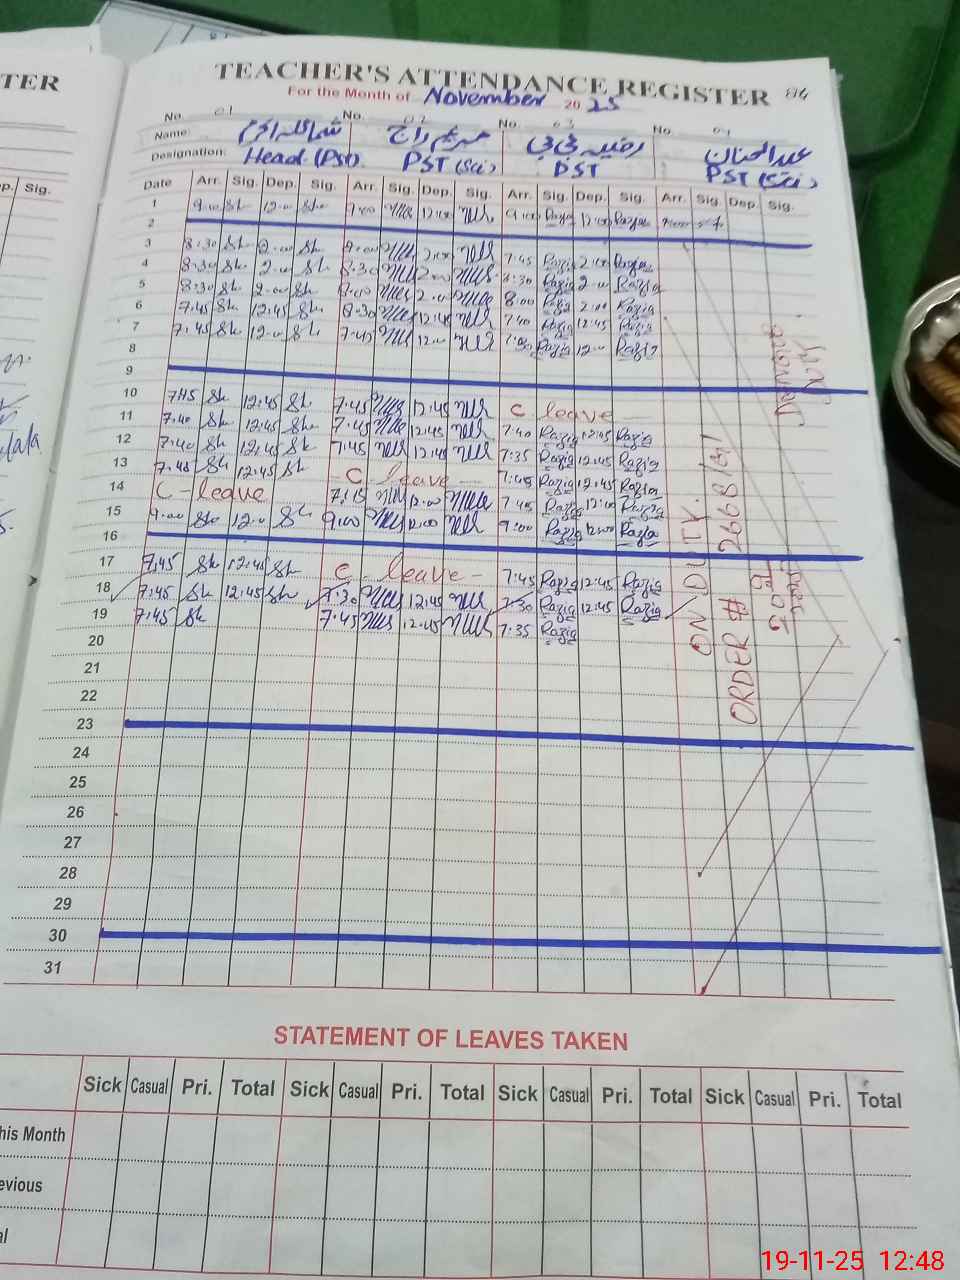 TER
TEACHER'S ATTENDANCE REGISTER
For the Month of November 2025
No. 01 No. 02 No. 03 No. 04
Name: شمائلہ اکرم مریم راج رضیہ بی بی عبدالحنان
Designation: Head (Pst). PST (Sci) PST PST (Sci)
p. Sig. Date Arr. Sig. Dep. Sig. Arr. Sig. Dep. Sig. Arr. Sig. Dep. Sig. Arr. Sig. Dep. Sig.
1 9:00 Sh 12:00 Sh 9:00 12:00 9:00 Razia 12:00 Razia
2
3 8:30 Sh 2:00 Sh 8:00 2:00 7:45 Razia 2:00 Razia
4 8:30 Sh 2:00 Sh 8:30 2:00 8:30 Razia 2:00 Razia
5 8:30 Sh 2:00 Sh 8:00 2:00 8:00 Razia 2:00 Razia
6 7:45 Sh 12:45 Sh 8:30 12:45 7:40 Razia 12:45 Razia
7 7:45 Sh 12:00 Sh 7:40 12:00 Razia 12:00 Razia
8
9
10 7:15 Sh 12:45 Sh 7:45 12:45 C leave
11 7:40 Sh 12:45 Sh 7:45 12:45 7:40 Razia 12:45 Razia
12 7:40 Sh 12:45 Sh 7:45 12:45 7:35 Razia 12:45 Razia
13 7:45 Sh 12:45 Sh C leave 7:45 Razia 12:45 Razia
14 C - leave 7:15 12:00 7:45 Razia 12:00 Razia
15 9:00 Sh 12:00 Sh 9:00 12:00 9:00 Razia 12:00 Razia
16
17 7:45 Sh 12:45 Sh C - leave - 7:45 Razia 12:45 Razia
18 7:45 Sh 12:45 Sh 7:30 12:45 7:30 Razia 12:45 Razia
19 7:45 Sh 7:45 12:45 7:35 Razia
20
21
22
23
24
25
26
27
28
29
30
31
ON DUTY.
ORDER # 2668/G1
STATEMENT OF LEAVES TAKEN
Sick Casual Pri. Total Sick Casual Pri. Total Sick Casual Pri. Total Sick Casual Pri. Total
his Month
evious
al
19-11-25 12:48